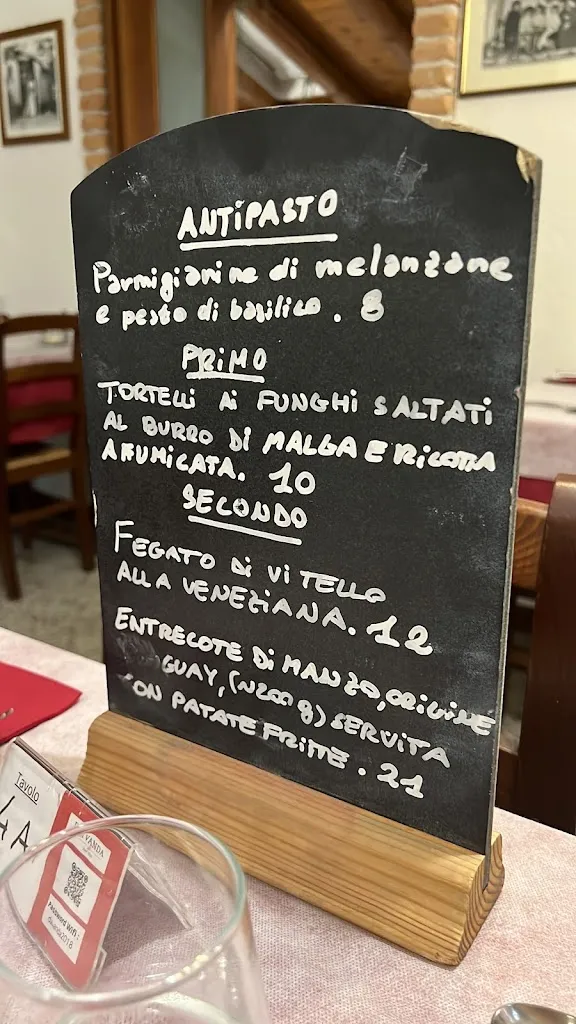 ANTIPASTO
Parmigianine di melanzane
e pesto di basilico. 8
PRIMO
TORTELLI Ai FUNGHI SALTATI
AL BURRO DI MALGA E RICOTTA
AFFUMICATA. 10
SECONDO
FEGATO Di ViTELLO
ALLA VENEZIANA. 12
ENTRECOTE Di MANZO, ORIGINE
GUAY, (N200g) SERVITA
ON PATATE FRITTE. 21
Tavolo
4A
VANDA
Password Wifi: